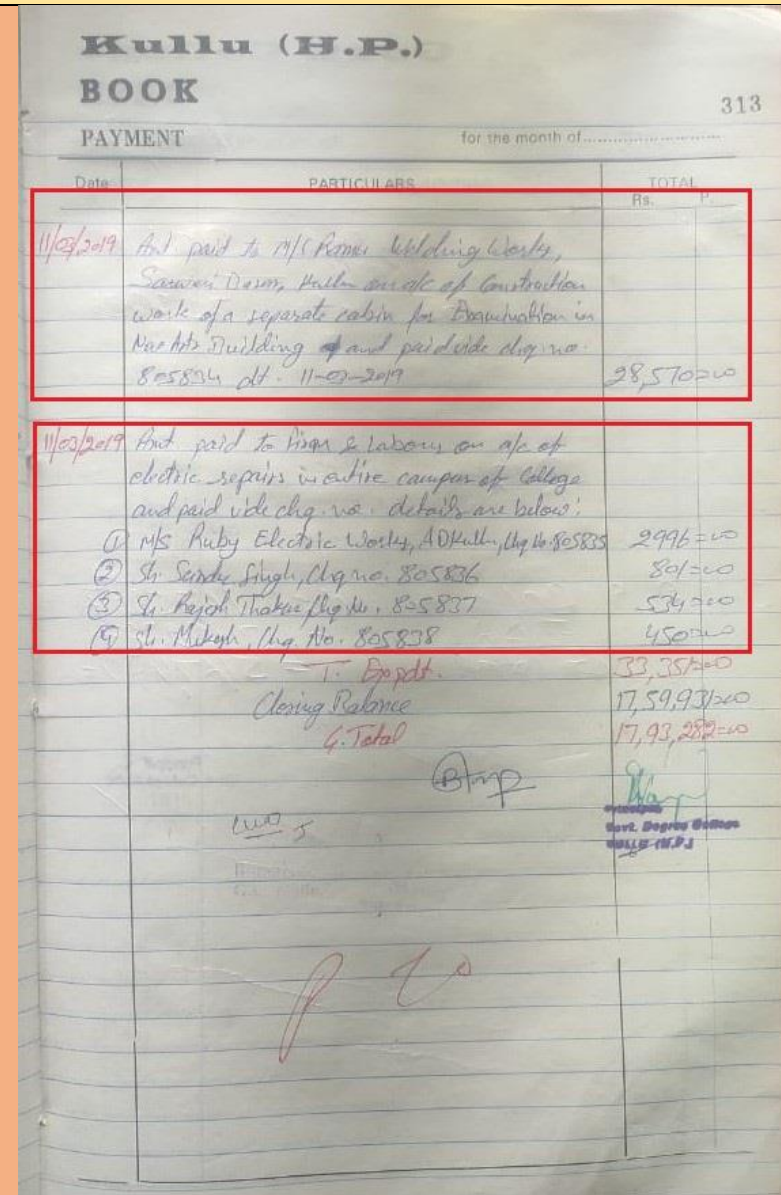 Kullu (H.P.)
BOOK
313
PAYMENT for the month of
Date PARTICULARS TOTAL
Rs. P.
11/03/2019 Amt paid to M/S Welding Works,
on a/c of Construction
work of a separate cabin for Examination in
New Arts Building and paid vide chq. no.
805834 dt. 11-03-2019 28,570=00
11/03/2019 Amt paid to firm & labours on a/c of
electric repairs in entire campus of College
and paid vide chq. no. details are below:
① M/S Ruby Electric Works, Chq No. 805835 2996=00
② Sh. Singh, Chq no. 805836 801=00
③ Sh. Rajesh Thakur Chq No. 805837 534=00
④ Sh. Mukesh, Chq. No. 805838 450=00
T. Expdt. 33,351=00
Closing Balance 17,59,931=00
G. Total 17,93,282=00
Principal
Govt. Degree College
KULLU (H.P.)